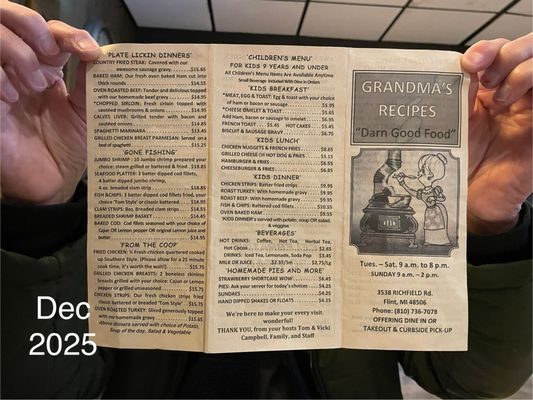 'PLATE LICKIN DINNERS'
COUNTRY FRIED STEAK: Covered with our
awesome sausage gravy. $15.65
BAKED HAM: Our fresh oven baked Ham cut into
thick rounds $14.55
OVEN ROASTED BEEF: Tender and delicious topped
with our homemade beef gravy $14.95
*CHOPPED SIRLOIN: Fresh sirloin topped with
sautéed mushrooms & onions $14.95
CALVES LIVER: Grilled tender with bacon and
sautéed onions $14.85
SPAGHETTI MARINARA $13.45
GRILLED CHICKEN BREAST PARMESAN: Served on a
bed of spaghetti $15.25
'GONE FISHING'
JUMBO SHRIMP: 10 Jumbo shrimp prepared your
choice: steam grilled or battered & fried $18.85
SEAFOOD PLATTER: 2 batter dipped cod fillets,
4 batter dipped jumbo shrimp,
4 oz. breaded clam strip $18.85
FISH & CHIPS: 3 batter dipped cod fillets fried, your
choice 'Tom Style' or classic battered $16.95
CLAM STRIPS: 8oz. Breaded clam strips $14.55
BREADED SHRIMP BASKET $14.45
BAKED COD: Cod fillets seasoned with your choice of
Cajun OR Lemon pepper OR original Lemon Juice and
butter $14.95
'FROM THE COOP'
FRIED CHICKEN: ¼ Fresh chicken-quartered cooked
up Southern Style. (Please allow for a 25 minute
cook time, it's worth the wait!) $15.75
GRILLED CHICKEN BREASTS: 2 boneless skinless
breasts grilled with your choice: Cajun or Lemon
pepper or grilled unseasoned $15.75
CHICKEN STRIPS: Our fresh chicken strips fried
classic battered or breaded 'Tom Style' $15.75
OVEN ROASTED TURKEY: Sliced generously topped
with our homemade gravy $15.65
Above dinners served with choice of Potato,
Soup of the day, Salad & Vegetable
'CHILDREN'S MENU'
FOR KIDS 9 YEARS AND UNDER
All Children's Menu Items Are Available Anytime
Small Beverage Included With Dine in Orders
'KIDS BREAKFAST'
*MEAT, EGG & TOAST: Egg & toast with your choice
of ham or bacon or sausage $5.95
*CHEESE OMELET & TOAST $5.65
Add Ham, bacon or sausage to omelet $6.95
FRENCH TOAST $5.45 HOT CAKES $5.45
BISCUIT & SAUSAGE GRAVY $6.75
'KIDS LUNCH'
CHICKEN NUGGETS & FRENCH FRIES $8.65
GRILLED CHEESE OR HOT DOG & FRIES $5.15
HAMBURGER & FRIES $6.55
CHEESEBURGER & FRIES $6.85
'KIDS DINNER'
CHICKEN STRIPS: Batter fried strips $9.95
ROAST TURKEY: With homemade gravy $9.95
ROAST BEEF: With homemade gravy $9.95
FISH & CHIPS: Battered fried $10.55
OVEN BAKED HAM $9.55
'KIDS DINNERS' served with potato, soup OR salad,
& veggies
'BEVERAGES'
HOT DRINKS: Coffee, Hot Tea, Herbal Tea,
Hot Cocoa $2.85
DRINKS: Iced Tea, Lemonade, Soda Pop $3.45
MILK OR JUICE $2.35/Sm $2.75/Lg
'HOMEMADE PIES AND MORE'
STRAWBERRY SHORTCAKE WOW $6.45
PIES: Ask your server for today's choices $4.25
SUNDAES $4.25
HAND DIPPED SHAKES OR FLOATS $4.15
We're here to make your every visit
wonderful!
THANK YOU, from your hosts Tom & Vicki
Campbell, Family, and Staff
GRANDMA'S
RECIPES
"Darn Good Food"
Tues. – Sat. 9 a.m. to 8 p.m.
SUNDAY 9 a.m. – 2 p.m.
3538 RICHFIELD Rd.
Flint, MI 48506
Phone: (810) 736-7078
OFFERING DINE IN OR
TAKEOUT & CURBSIDE PICK-UP
Dec
2025